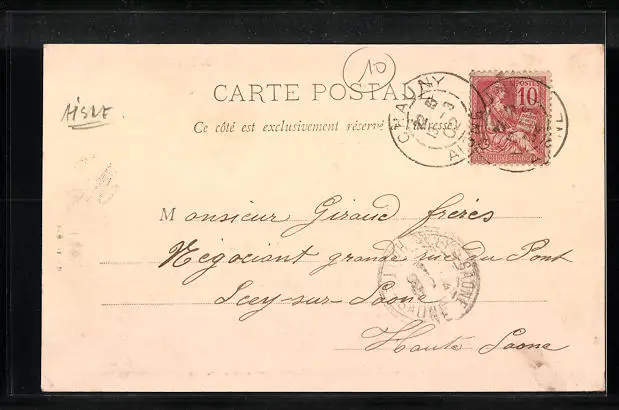 10
AISNE
CARTE POSTALE
CHAUNY
AISNE
POSTES
10
Ce côté est exclusivement réservé à l'adresse
Monsieur Giraud frères
Négociant grande rue du Pont
Scey-sur-Saone
Haute Saone
SCEY-S-SAONE